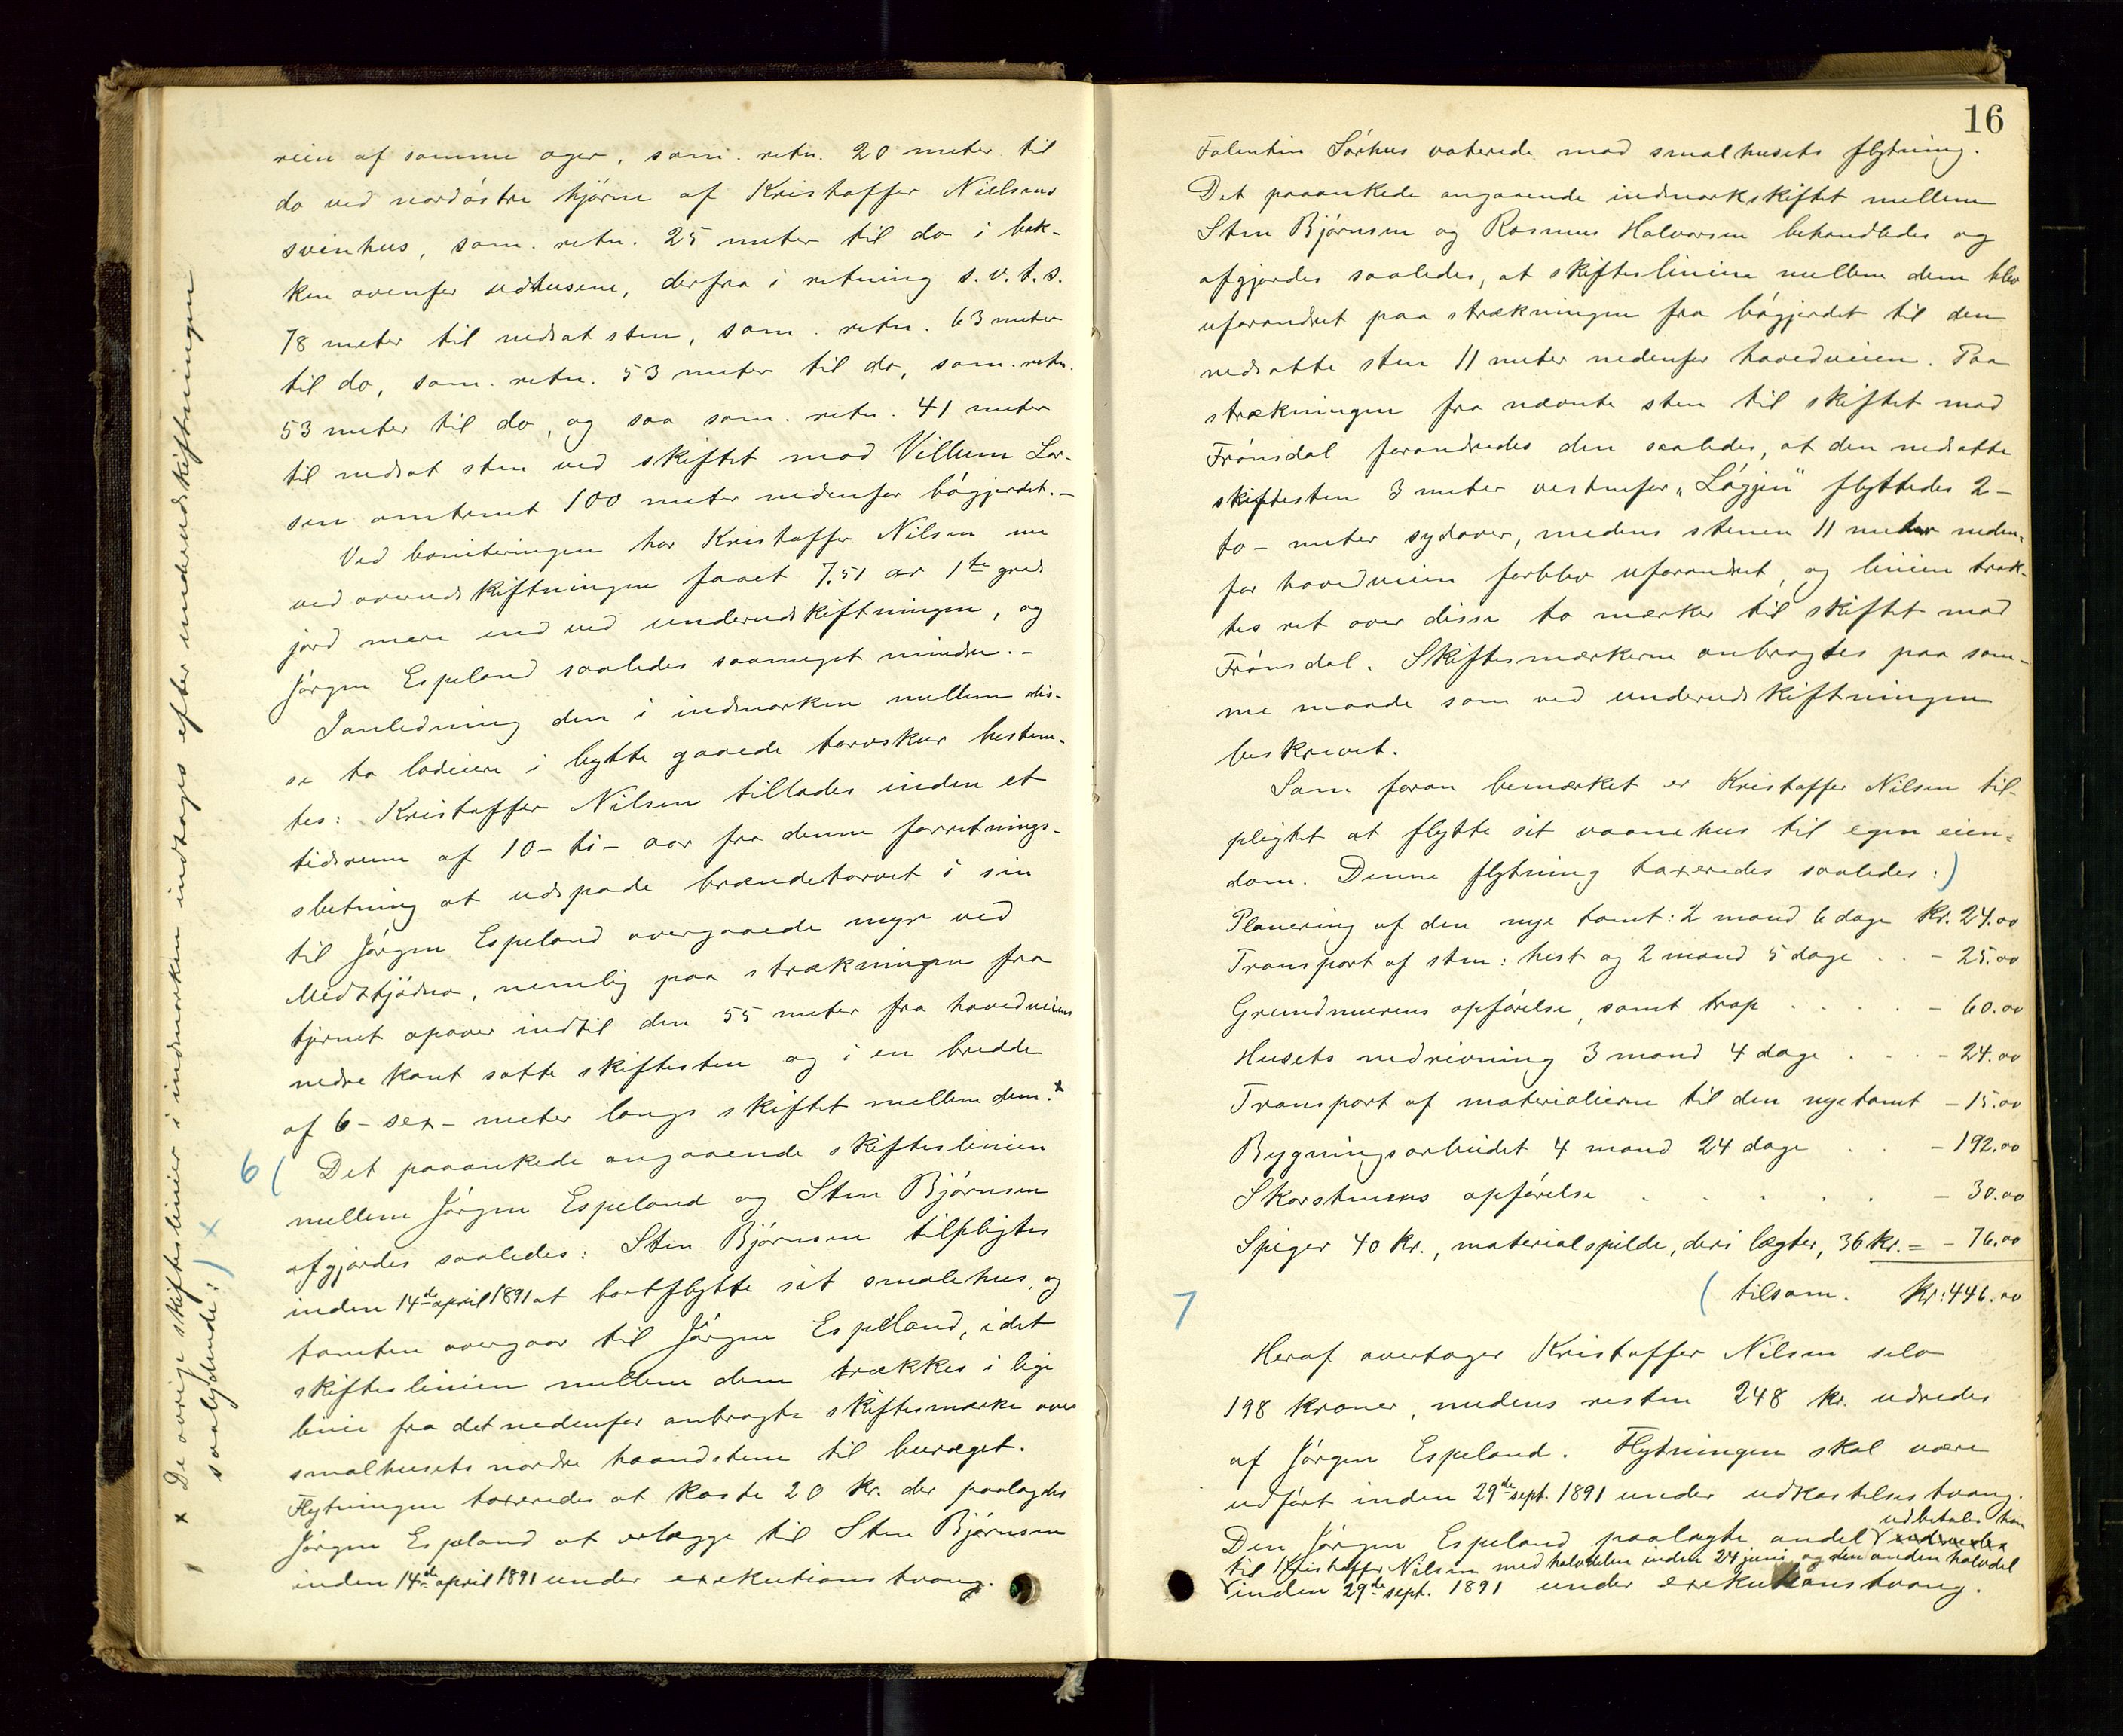 reien af samme ager, sam. retn. 20 meter til
do ved nordöstre hjörne af Kristoffer Nielsens
svinhus, sam. retn. 25 meter til do i bak-
ken ovenfor udhusene, derfra i retning s.v.t.s.
78 meter til nedsat sten, sam. retn. 63 meter
til do, sam. retn. 53 meter til do, sam. retn.
53 meter til do, og saa sam. retn. 41 meter
til nedsat sten ved skiftet mod Villum Lar-
sen omtrent 100 meter nedenfor bögjerdet.-
Ved boniteringen har Kristoffer Nilsen nu
ved overudskiftningen faaet 7.51 ar 1ste grads
jord mere end ved underudskiftningen, og
Jörgen Espeland saaledes saameget mindre.-
Ianledning den i indmarken mellem dis-
se to lodeiere i bytte gaaede torvskur bestem-
tes: Kristoffer Nilsen tillades inden et
tidsrum af 10- ti- aar fra denne forretnings-
slutning at udspade brændetorvet i sin
til Jörgen Espeland overgaaede myr ved
Midttjödna, nemlig paa strækningen fra
tjernet opover indtil den 55 meter fra hovedveiens
nedre kant satte skiftesten og i en bredde
af 6- sex- meter langs skiftet mellem dem. x
6 ( Det paaankede angaaende skifteslinien
mellem Jörgen Espeland og Sten Björnsen
afgjordes saaledes: Sten Björnsen tilpligtes
inden 14de april 1891 at bortflytte sit smalehus, og
tomten overgaar til Jörgen Espeland, idet
skifteslinien mellem dem trækkes i lige
linie fra det nedenfor anbragte skiftesmærke over
smalhusets nordre haandstene til beræget.
Flytningen taxeredes at koste 20 kr. der paalagdes
Jörgen Espeland at erlægge til Sten Björnsen
inden 14de april 1891 under exekutionstvang.
x De övrige skifteslinier i indmarken indtages efter underudskiftningen
saalydende: ) x
16
Falentin Sörhus voterede mod smalhusets flytning.
Det paaankede angaaende indmarkskiftet mellem
Sten Björnsen og Rasmus Halvorsen behandledes og
afgjordes saaledes, at skifteslinien mellem dem blev
uforandret paa strækningen fra bögjerdet til den
nedsatte sten 11 meter nedenfor hovedveien. Paa
strækningen fra nævnte sten til skiftet mod
Frönsdal forandredes den saaledes, at den nedsatte
skiftesten 3 meter vestenfor "Lögjen" flyttedes 2-
to- meter sydover, medens stenen 11 meter neden-
for hovedveien forblev uforandret, og linien træk-
tes ret over disse to mærker til skiftet mod
Frönsdal. Skiftesmærkerne anbragtes paa sam-
me maade som ved underudskiftningen
beskrevet.
Som foran bemærket er Kristoffer Nilsen til-
pligtet at flytte sit vaanehus til egen eien-
dom. Denne flytning taxeredes saaledes: )
Planering af den nye tomt: 2 mand 6 dage kr. 24.00
Transport af sten: hest og 2 mand 5 dage . . - 25.00
Grundmurens opförelse, samt trap . . . . - 60.00
Husets nedrivning 3 mand 4 dage . . . - 24.00
Transport af materialierne til den nye tomt - 15.00
Bygningsarbeidet 4 mand 24 dage . . - 192.00
Skorstenens opförelse . . . . . - 30.00
Spiger 40 kr., materialspilde, deri lægter, 36 kr. = - 76.00
7 ( tilsam. kr: 446.00
Heraf overtager Kristoffer Nilsen selv
198 kroner, medens resten 248 kr. udredes
af Jörgen Espeland. Flytningen skal være
udfört inden 29de sept. 1891 under udkastelsestvang.
udbetales han
Den Jörgen Espeland paalagte andel
til Kristoffer Nilsen med halvdelen inden 24 juni og den anden halvdel
inden 29de sept. 1891 under exekutionstvang.